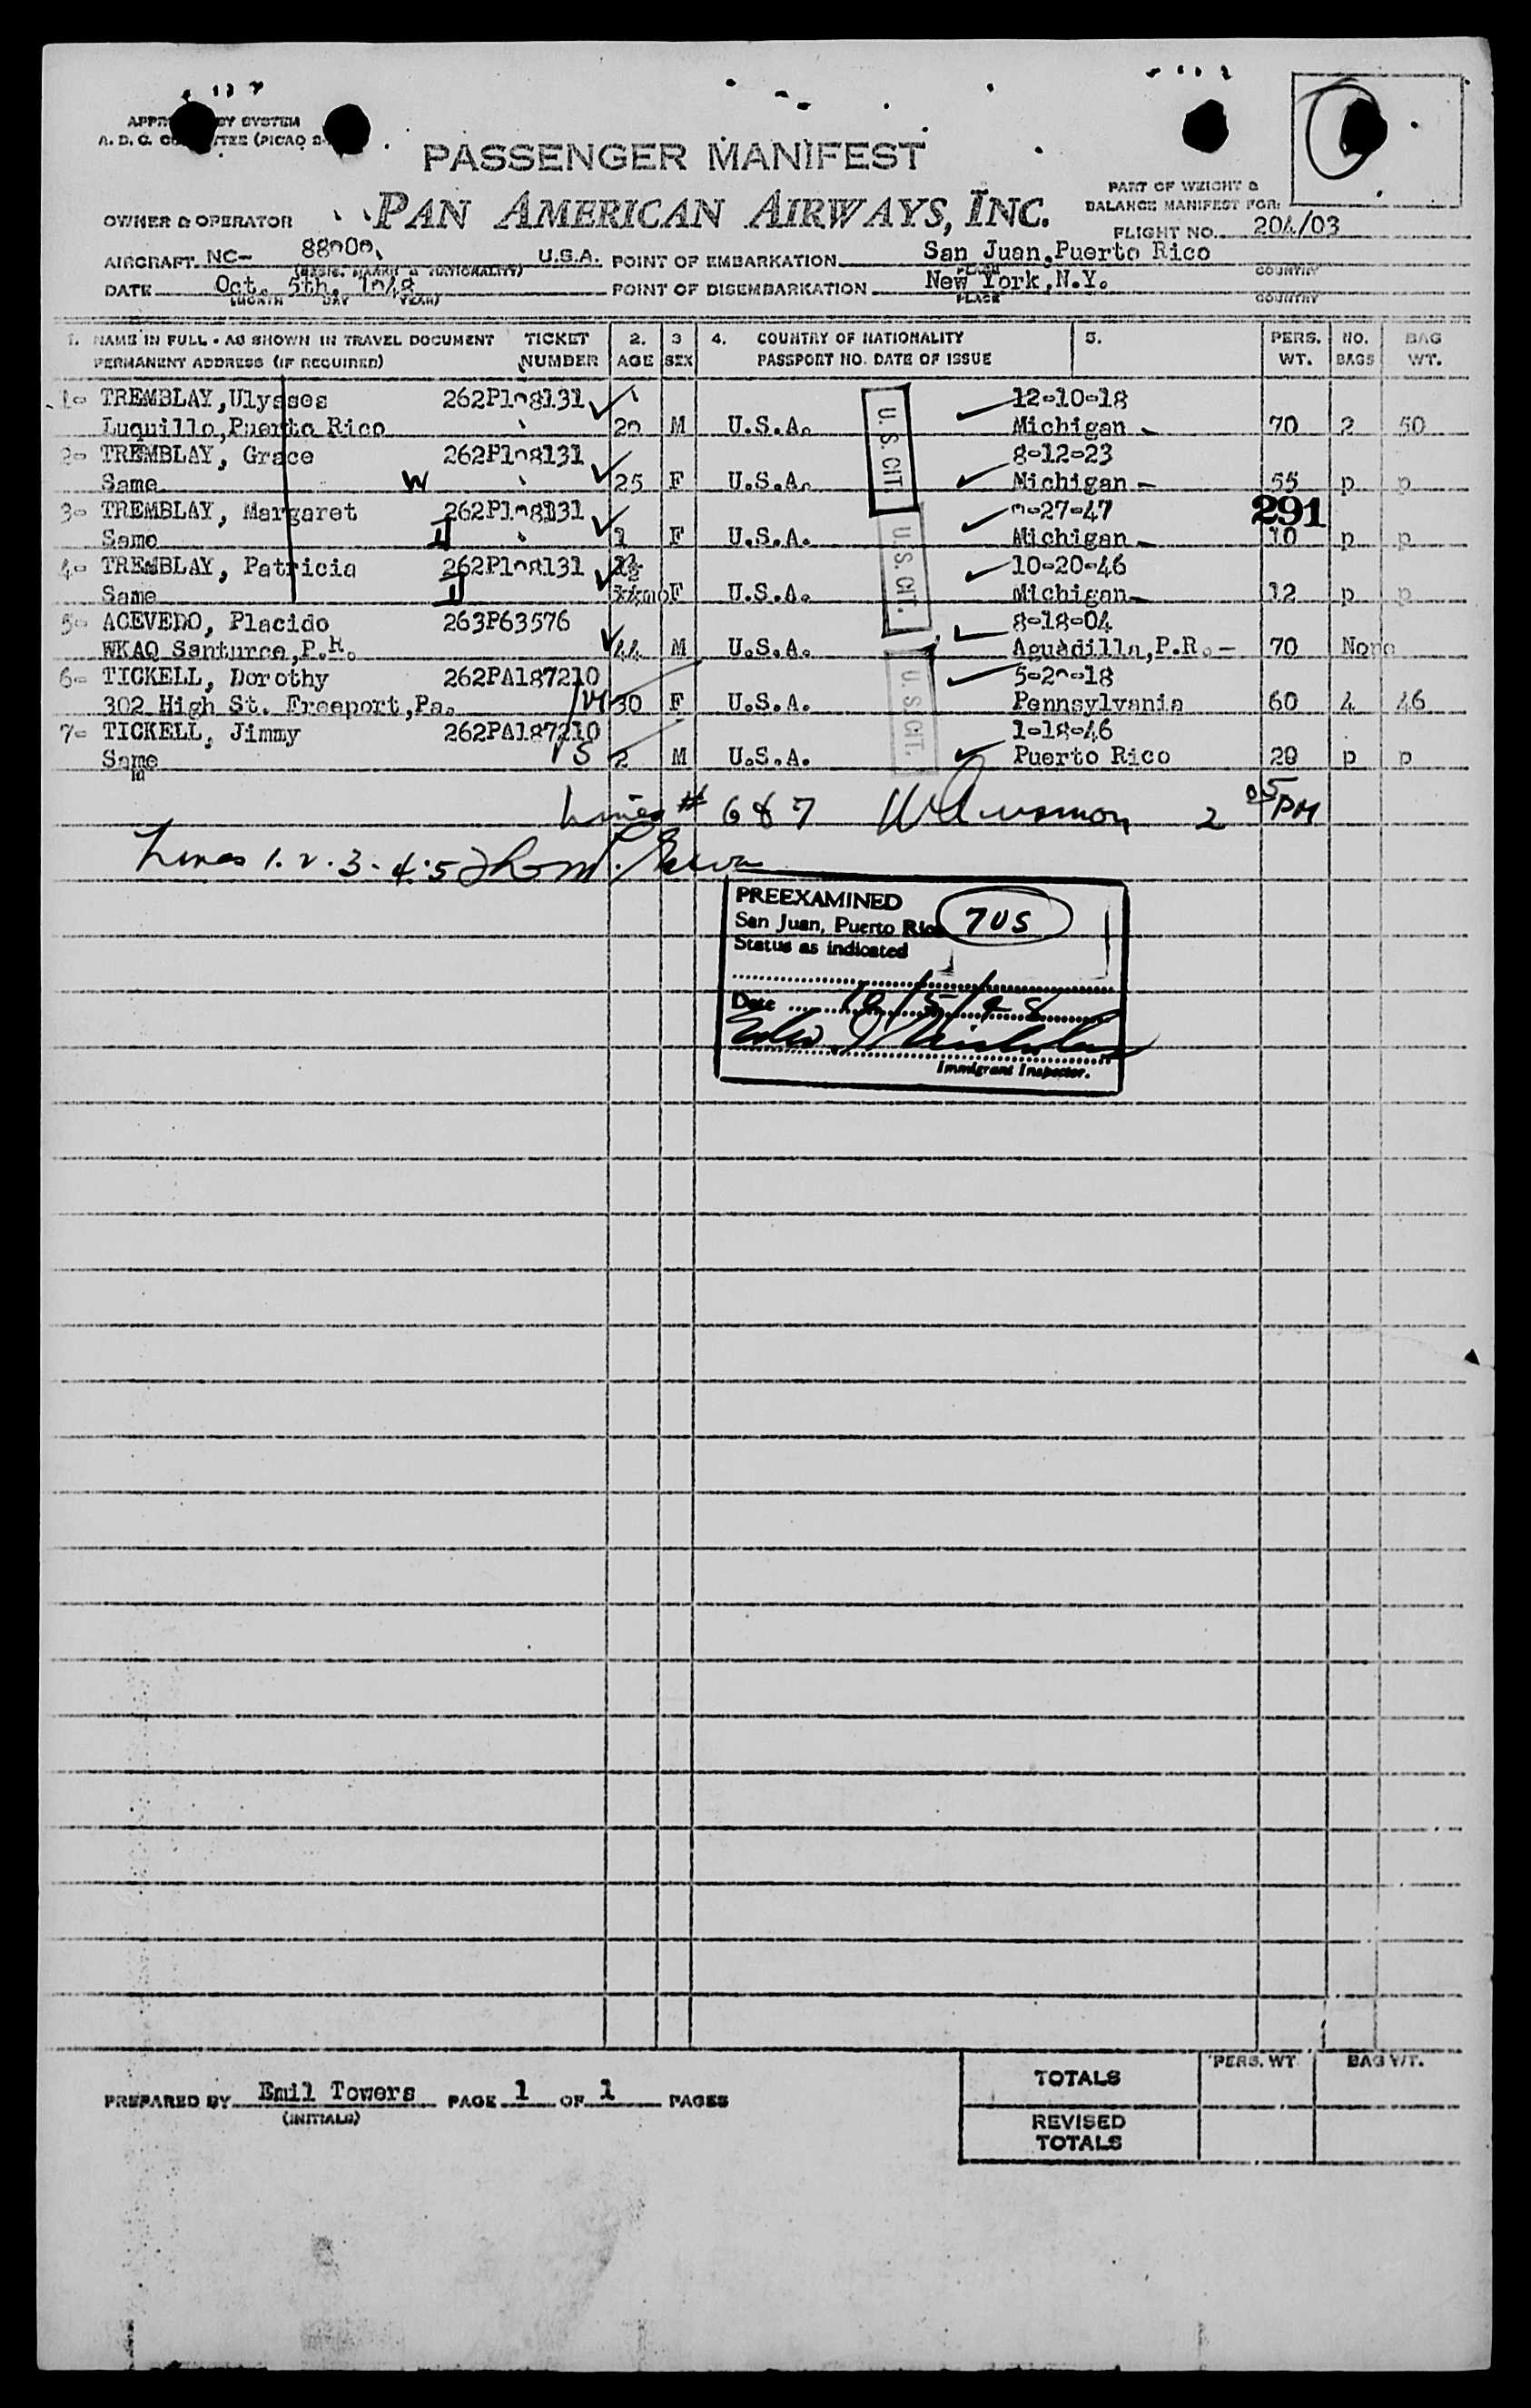 PASSENGER MANIFEST
PART OF WEIGHT &
BALANCE MANIFEST FOR:
OWNER & OPERATOR PAN AMERICAN AIRWAYS, INC.
FLIGHT NO. 204/03
AIRCRAFT NC- U.S.A. POINT OF EMBARKATION San Juan, Puerto Rico
(REGIS. MARKS & NATIONALITY) PLACE COUNTRY
DATE Oct. 5th, 1948 POINT OF DISEMBARKATION New York, N.Y.
(MONTH DAY YEAR) PLACE COUNTRY
1. NAME IN FULL - AS SHOWN IN TRAVEL DOCUMENT TICKET 2. 3 4. COUNTRY OF NATIONALITY 5. PERS. NO. BAG
PERMANENT ADDRESS (IF REQUIRED) NUMBER AGE SEX PASSPORT NO. DATE OF ISSUE WT. BAGS WT.
1- TREMBLAY, Ulysses 262P108131 12-10-18
Luquillo, Puerto Rico M U.S.A. Michigan 70 2 50
2- TREMBLAY, Grace 262P108131 8-12-23
Same W 25 F U.S.A. Michigan - 55 p p
3- TREMBLAY, Margaret 262P108131 27-47 291
Same 1 F U.S.A. Michigan - 10 p p
4- TREMBLAY, Patricia 262P108131 10-20-46
Same F U.S.A. Michigan- 12 p p
5- ACEVEDO, Placido 263P63576 8-18-04
WKAQ Santurce, P.R. 44 M U.S.A. Aguadilla, P.R. - 70 None
6- TICKELL, Dorothy 262PA187210 5-20-18
302 High St. Freeport, Pa. 30 F U.S.A. Pennsylvania 60 4 46
7- TICKELL, Jimmy 262PA187210 1-18-46
Same 2 M U.S.A. Puerto Rico 20 p p
U.S. CIT.
U.S. CIT.
U.S. CIT.
Lines # 6 & 7 2 05 PM
Lines 1. 2. 3. 4. 5
PREEXAMINED
San Juan, Puerto Rico 7 US
Status as indicated
Date 10/5/48
Immigrant Inspector.
TOTALS PERS. WT. BAG WT.
PREPARED BY Emil Towers PAGE 1 OF 1 PAGES
(INITIALS)
REVISED
TOTALS